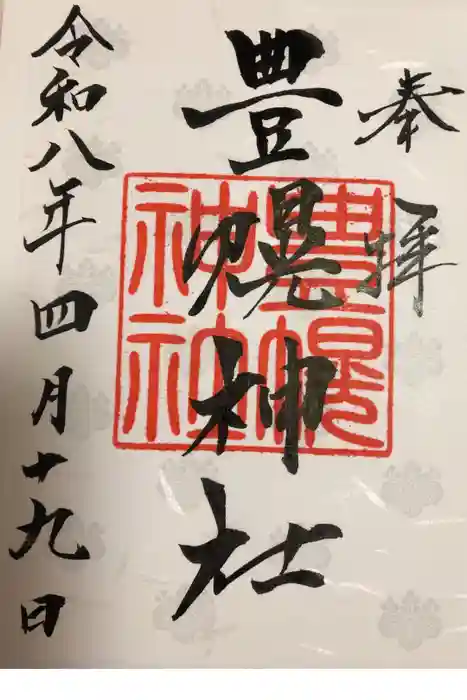 奉拝
豊幌神社
豊幌神社
令和八年四月十九日